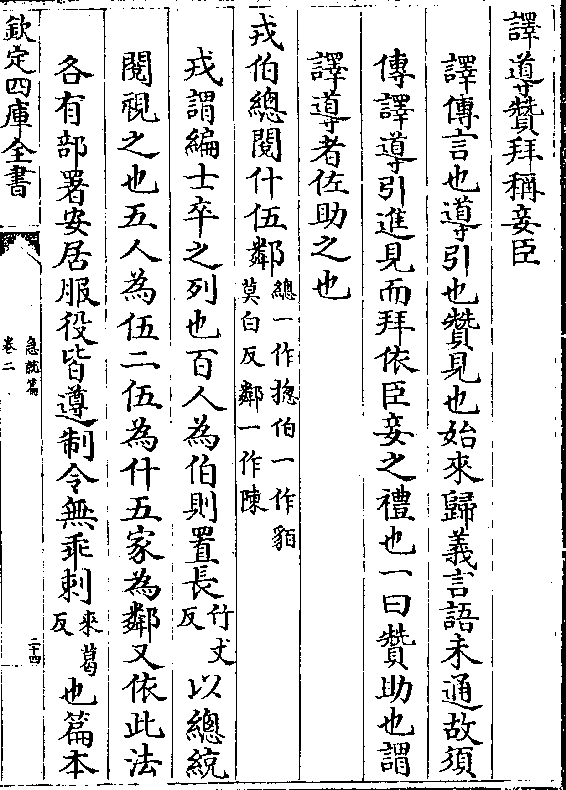 譯導贊拜稱妾臣
譯傳言也導引也贊見也始來歸義言語未通故須
傳譯導引進見而拜依臣妾之禮也一曰贊助也謂
譯導者佐助之也
戎伯總閱什伍鄰總一作摠伯一作貊
莫白反鄰一作陳
戎謂編士卒之列也百人為伯則置長竹丈反以總統
閱視之也五人為伍二伍為什五家為鄰又依此法
各有部署安居服役皆遵制令無乖剌來葛反也篇本
欽定四庫全書
急就篇
卷二
二十四